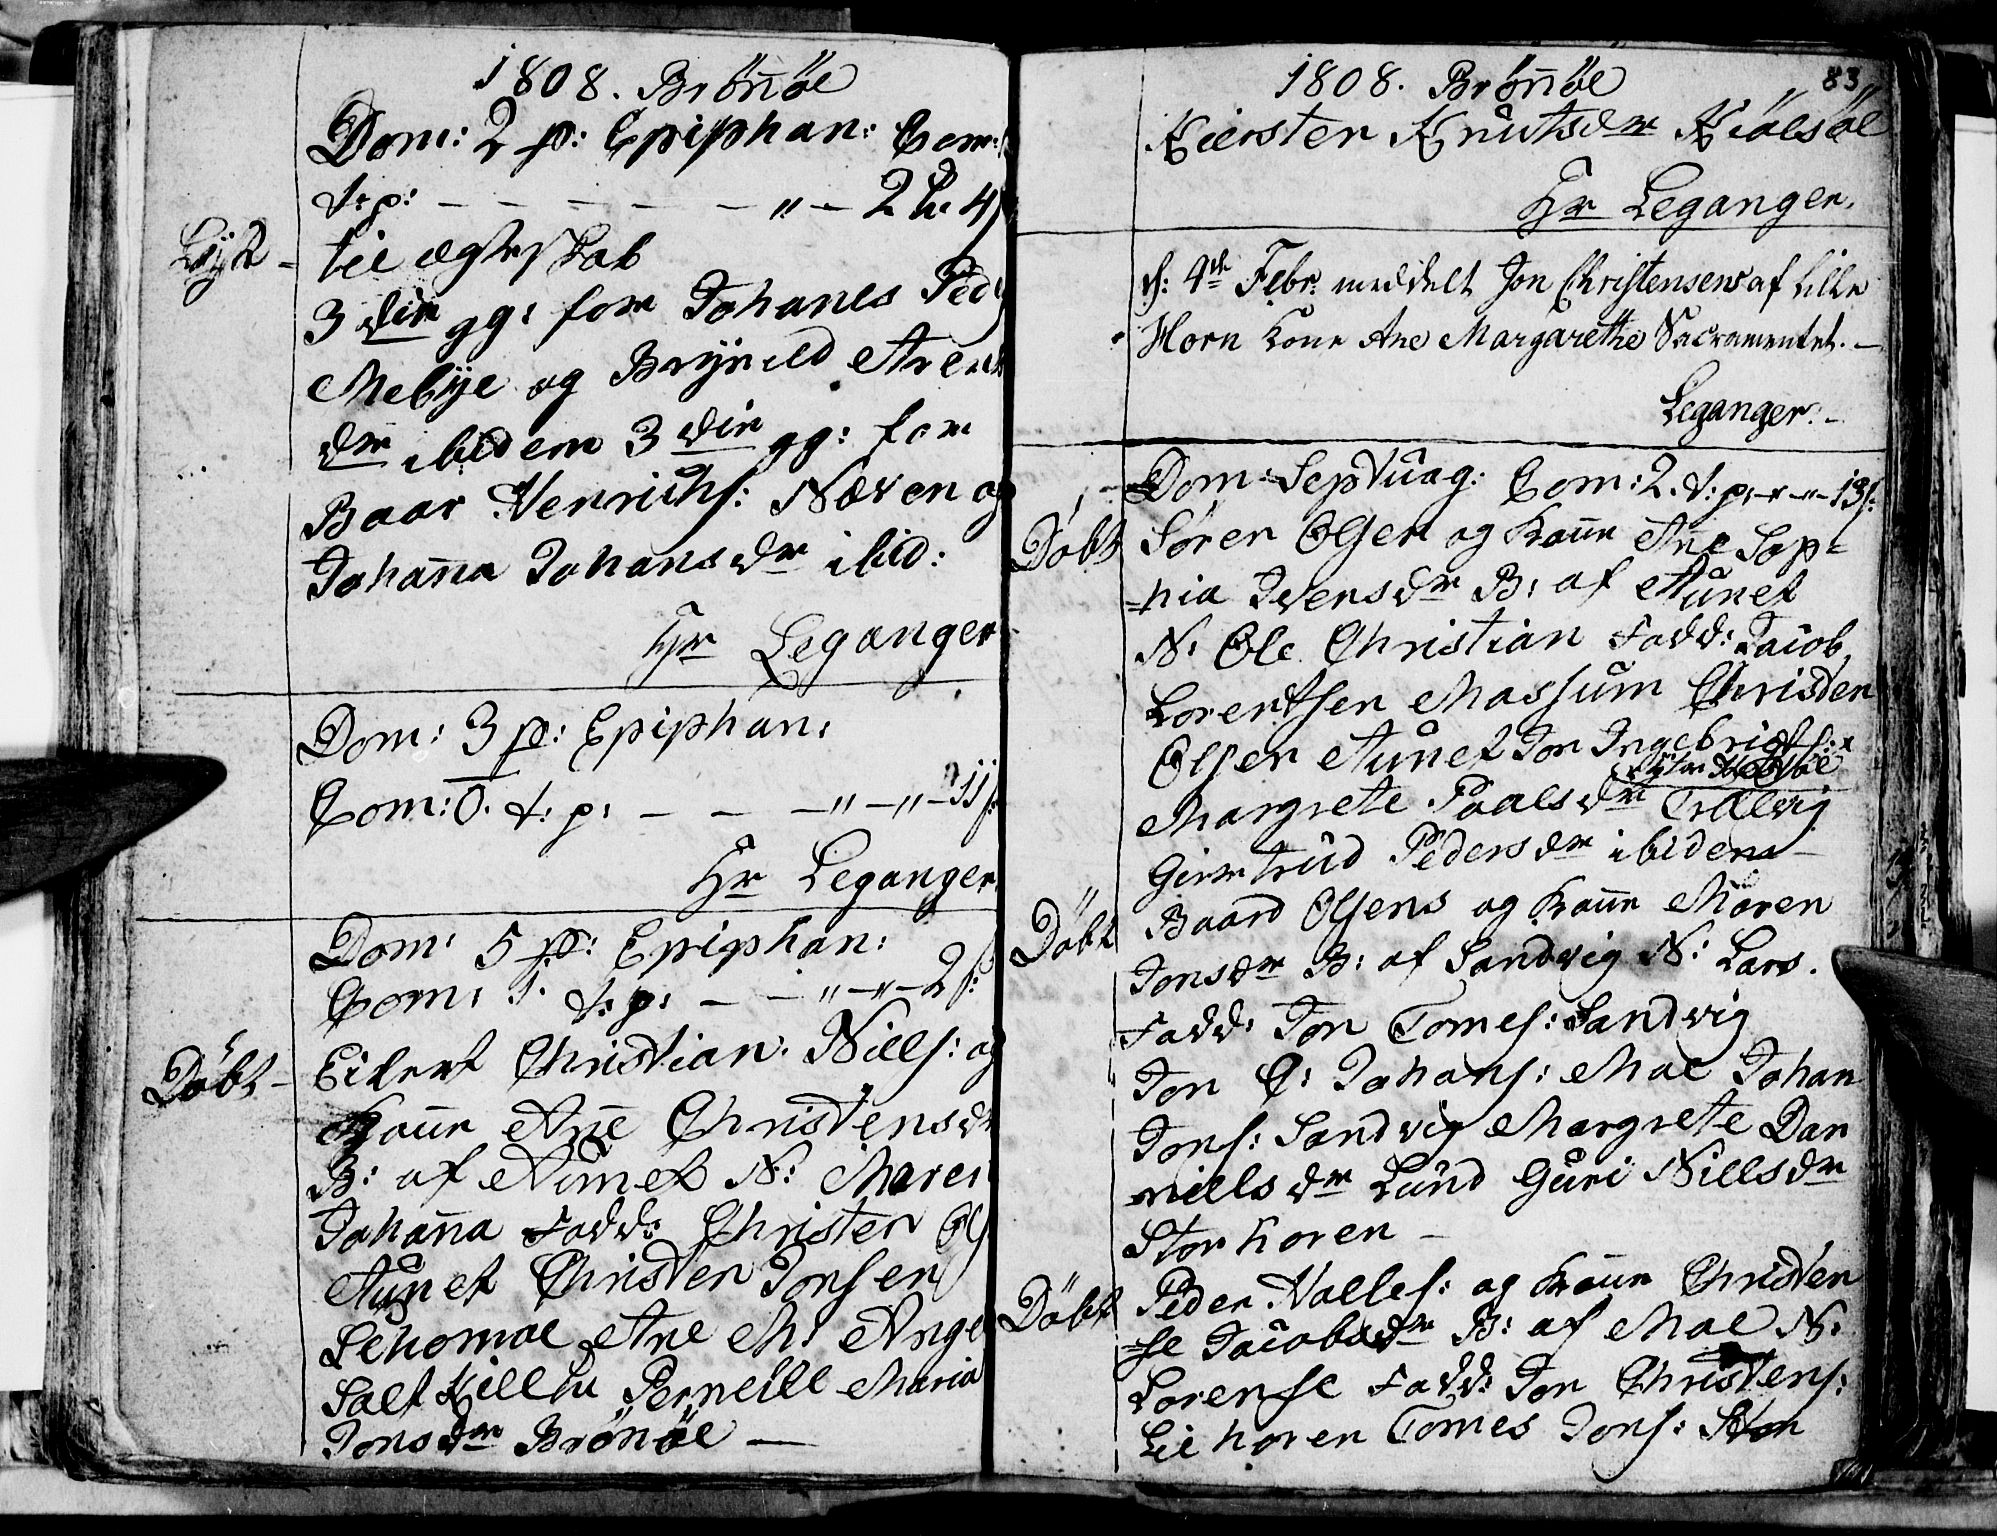 1808. Brönöe
Dom: 2 p: Epiphan: Com:
t:p: — — — — — — „ — 2 4
Lyst - til ægteskab
3die gg: for Johanes Ped
Mebÿe og Brÿnild Arent
dr ibidem 3die gg: for
Baar Henrichs: Næven og
Johana Johansdr ibid:
Hr Leganger
Dom: 3 p: Epiphan:
Com: 0. t: p: — — — „ — „ — 11 s:
Hr Leganger
Dom: 5 p: Epiphan:
Com: 1. t: p: — — „ — „ — 2 s:
Döbt - Eilert Christian Niels: og
Kone Ane Christensdr
B: af Aunet N: Maren
Johana Fadd: Christen Ols
Aunet Christen Jonsen
Ane M: Ange
Salt Pernelle Maria
Jonsdr Brönöe —
1808. Brönöe 83
Kiersten Knutsdr
Hr Leganger.
d: 4de Febr: meddelt Jon Christensens af Lille
Horn Kone Ane Margarethe Sacramentet. —
Leganger. -
Dom: Septuag: Com: 2. t: p: — „ — 13 s:
Döbt Sören Olsen og Kone Ane Sop=
=hia Iversdr B: af Aunet
N: Ole Christian Fadd: Jacob
Lorentsen Massum Christen
Olsen Aunet Jon Ingebrigts: x
Margrete Paalsdr
Giertrud Pedersdr ibidem —
Döbt Baard Olsens og Kone Maren
Jonsdr B: af Sandvig N: Lars.
Fadd: Jon Tomes: Sandvig
Jon C: Johans: Moe Johan
Jons: Sandvig Margrete Dan
nielsdr Lund Guri Nillsdr
Storhoren —
Döbt Peder Halles: og Kone Christen
=se Jacobsdr B: af Moe N:
Lorense Fadd: Jon Christens:
Liehoren Tomes Jons: Stor